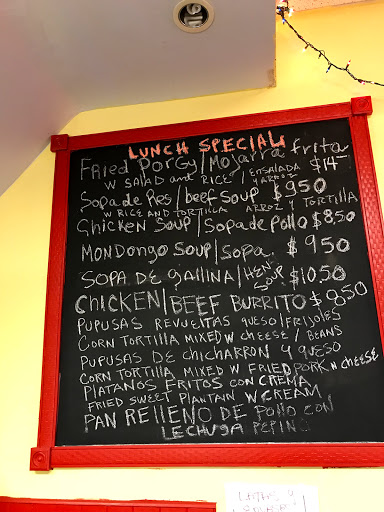 LUNCH SPECIAL
Fried Porgy/Mojarra frita
W SALAD and RICE/ENSALADA Y ARROZ $14-
Sopa de Res/beef Soup $950
W RICE AND TORTILLA ARROZ Y TORTILLA
Chicken Soup/Sopa de Pollo $8.50
MONDONGO SOUP/SOPA. $950
SOPA DE GALLINA/HEN SOUP $10.50
CHICKEN/BEEF BURRITO $8.50
PUPUSAS REVUELTAS QUESO/FRIJOLES
CORN TORTILLA MIXED W CHEESE/BEANS
PUPUSAS DE CHICHARRON Y QUESO
CORN TORTILLA MIXED W FRIED PORK N CHEESE
PLATANOS FRITOS CON CREMA
FRIED SWEET PLANTAIN W CREAM
PAN RELLENO DE POLLO CON
LECHUGA PEPINO